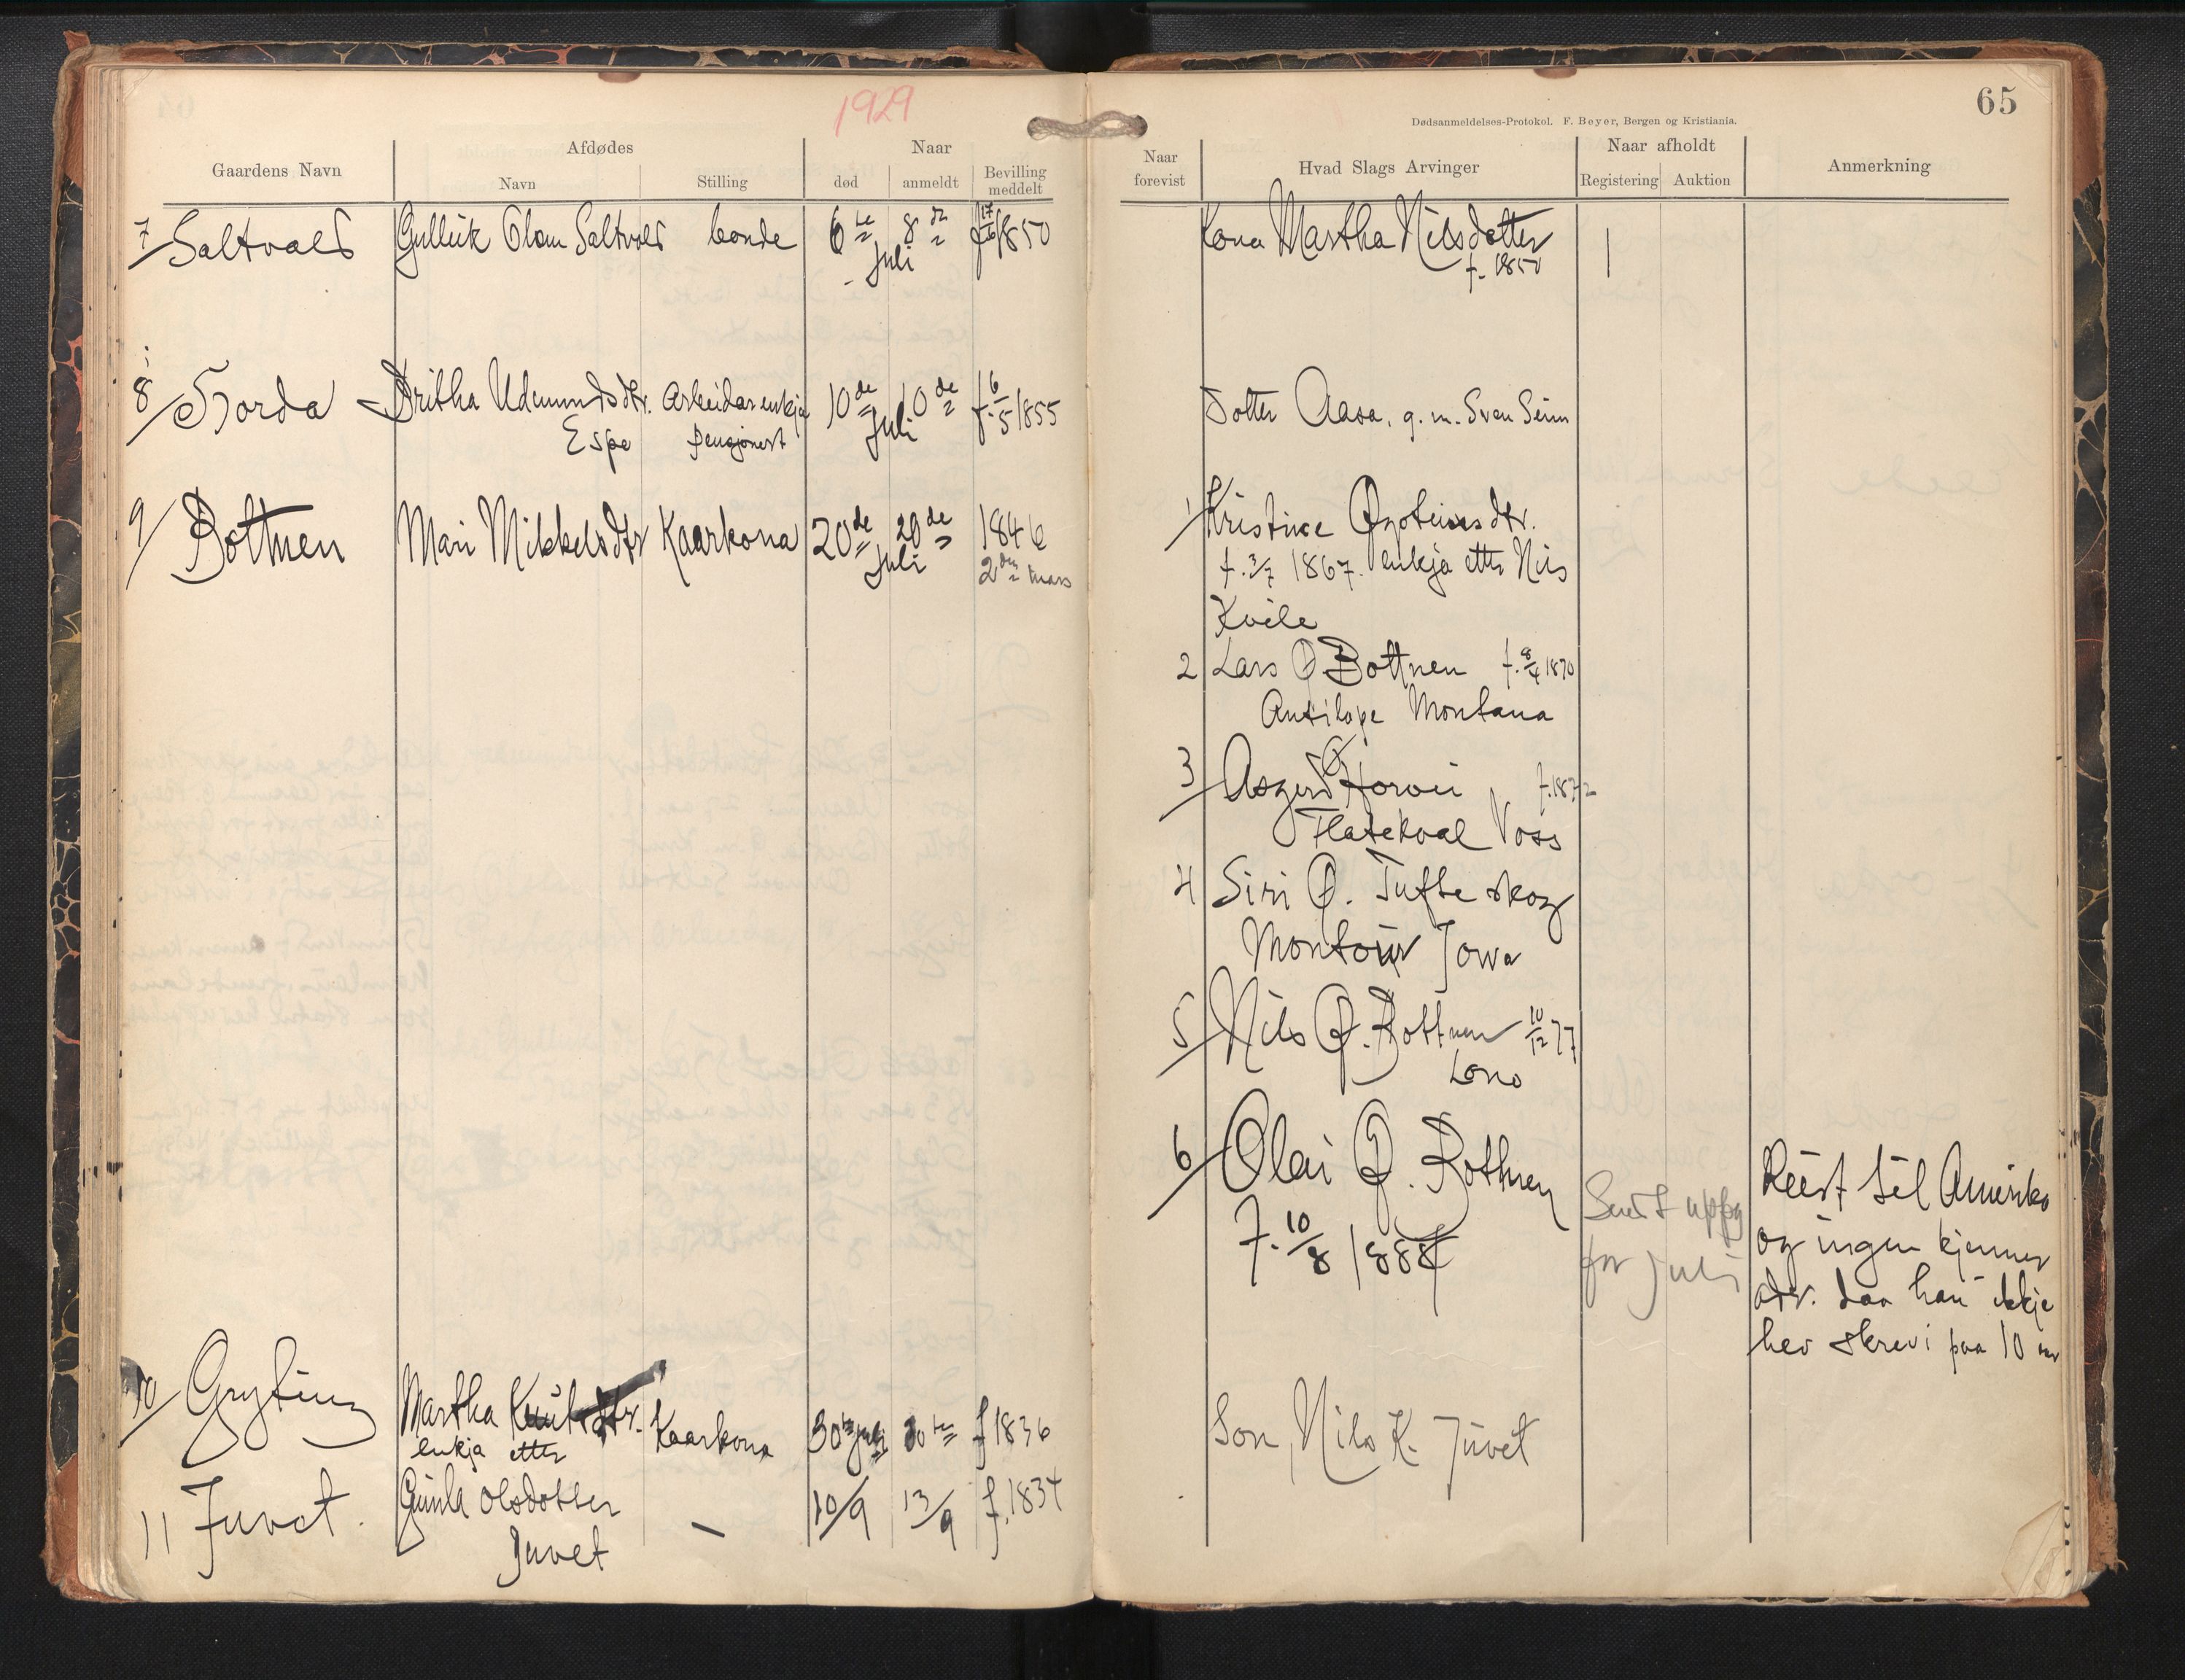 1929
Afdødes
Naar
Gaardens Navn
Navn
Stilling
død
anmeldt
Bevilling
meddelt
7 Saltvold Gulleik Olson Saltvold bonde 6te 8de f 17/6 1850
Juli
8 Horda Britha Udmundsdtr. Arbeidarenkja 10de 10de f. 6/5 1855
Juli
Espe pensjonert
9 Bottnen Mari Mikkelsdtr Kaarkona 20de 20de 1846
Juli 2den mars
10 Gryting Martha Knutsdtr. Kaarkona 30te juli 30te f 1836
enkja etter
11 Juvet. Gunla Olsdotter — 10/9 13/9 f. 1834
Juvet
65
Dødsanmeldelses-Protokol. F. Beyer, Bergen og Kristiania.
Naar
forevist
Hvad Slags Arvinger
Naar afholdt
Registering
Auktion
Anmerkning
Kona Martha Nilsdotter
f. 1850
Dotter Aasa. g. m. Sven Seim
1 Kristine Østeinsdtr.
f. 3/7 1867. enkja etter Nils
Kvile
2 Lars Ø Bottnen f. 8/4 1870
Antilope Montana
3 Asgerd Ø Horvei f. 1872
Flatekval Voss
4 Siri Ø. Tufteskog
Montour Jowa
5 Nils Ø. Bottnen 10/12 77
Lono
6 Olai Ø. Bottnen
f. 10/8 1884
Sendt uppg
for Juli
Reist til Amerika
og ingen kjenner
adr. daa han ikkje
hev skrevi paa 10 aar
Son, Nils K. Juvet